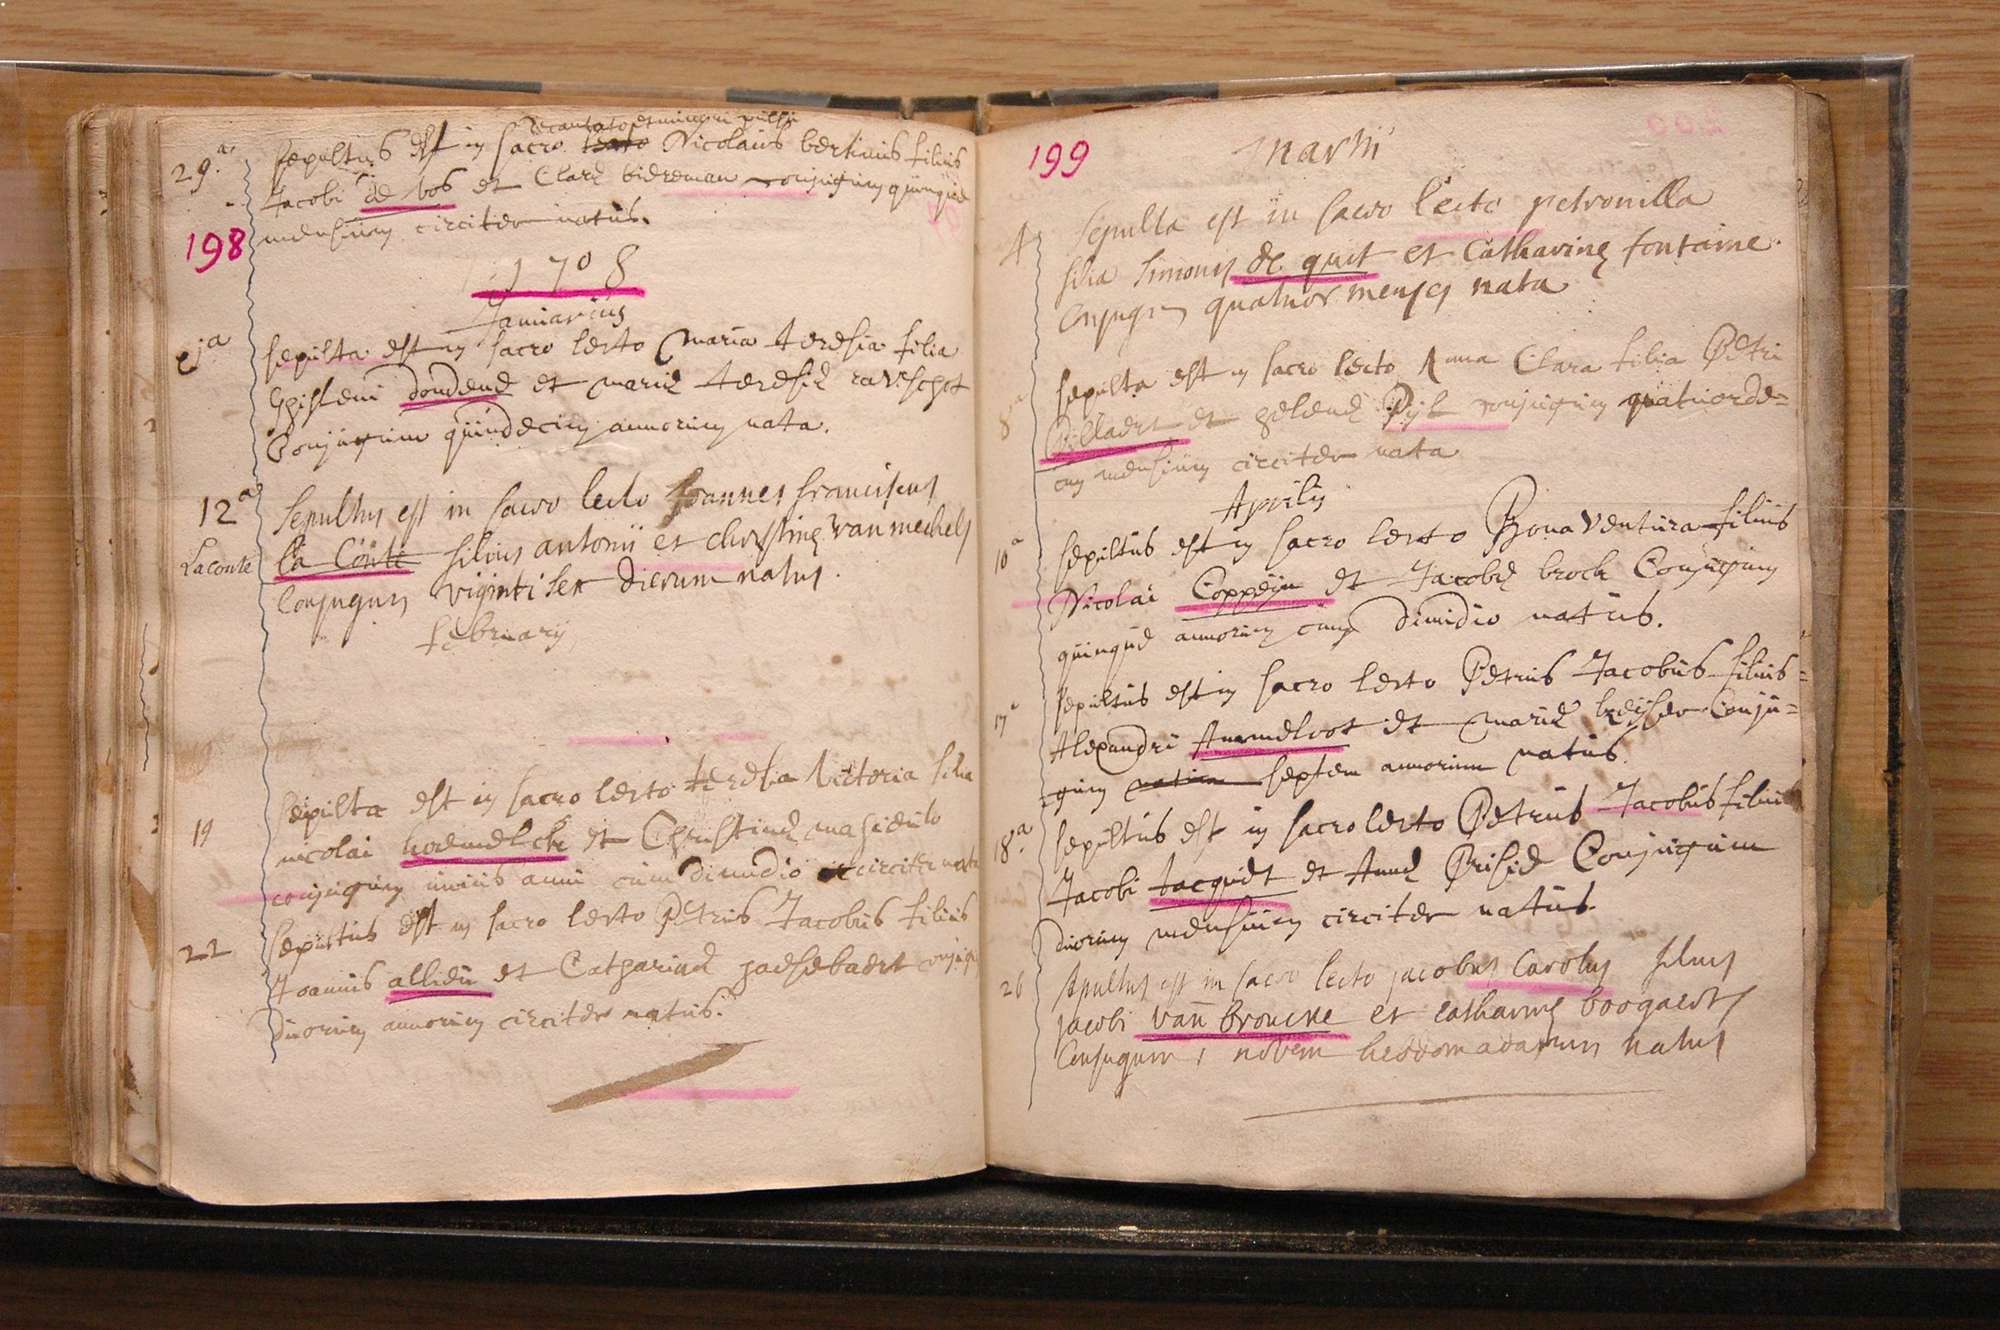 29.a sepultus est in sacro lecto Nicolaus bertinus filius
decantato et minori pulsu
Jacobi de vos et Claræ biereman conjugum quinque
198 mensium circiter natus.
1708
Januarius
sepulta est in sacro lecto Maria teresia filia
Ghisleni dondene et mariæ teresiæ ravschot
Conjugum quindecim annorum nata.
12a Sepultus est in sacro lecto Joannes franciscus
Laconte La Conte filius antonii et christinæ van mechels
Conjugum viginti sex dierum natus.
februarij
19 Sepulta est in sacro lecto teresia Victoria filia
nicolai horemelck et Christinæ
conjugum unius anni cum dimidio circiter nata
22 sepultus est in sacro lecto Petrus Jacobus filius
Joannis allieu et Catharinæ haesebaert conjugum
duorum annorum circiter natus.
199 Martii
4 Sepulta est in sacro lecto petronilla
filia Simonis de quit et Catharinæ fontaine
Conjugum quatuor menses nata
8a sepulta est in sacro lecto Anna Clara filia Petri
Pillaert et helenæ Pyl conjugum quatuorde=
cim mensium circiter nata
Aprilis
10a sepultus est in sacro lecto Bonaventura filius
Nicolai Coppein et Jacobæ brock Conjugum
quinque annorum cum dimidio natus.
17a sepultus est in sacro lecto Petrus Jacobus filius=
Alexandri Ammeloot et Mariæ keijser Conju=
gum septem annorum natus.
18a sepultus est in sacro lecto Petrus Jacobus filius
Jacobi Jacquet et Annæ Prisie Conjugum
duorum mensium circiter natus.
26 Sepultus est in sacro lecto jacobus Carolus filius
jacobi van Broucke et catharinæ boogaerts
Conjugum, novem hebdomadarum natus